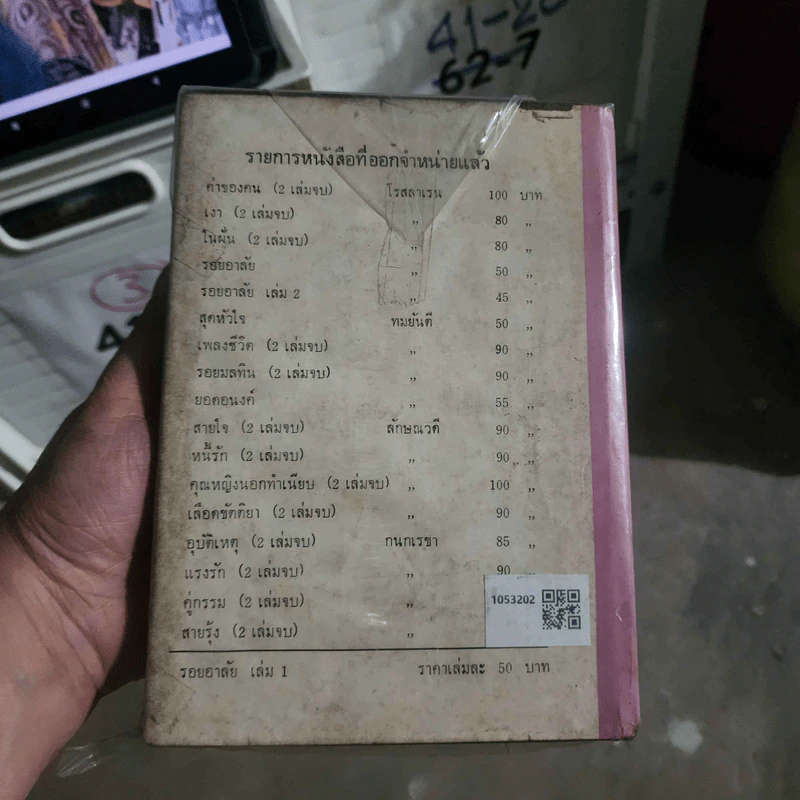 41-20
62-7
3
รายการหนังสือที่ออกจำหน่ายแล้ว
ค่าของคน (2 เล่มจบ) โรสลาเรน 100 บาท
เงา (2 เล่มจบ) ,, 80 ,,
ในฝัน (2 เล่มจบ) ,, 80 ,,
รอยอาลัย ,, 50 ,,
รอยอาลัย เล่ม 2 ,, 45 ,,
สุดหัวใจ ทมยันตี 50 ,,
เพลงชีวิต (2 เล่มจบ) ,, 90 ,,
รอยมลทิน (2 เล่มจบ) ,, 90 ,,
ยอดอนงค์ ,, 55 ,,
สายใจ (2 เล่มจบ) ลักษณวดี 90 ,,
หนี้รัก (2 เล่มจบ) ,, 90 ,,
คุณหญิงนอกทำเนียบ (2 เล่มจบ) ,, 100 ,,
เลือดขัตติยา (2 เล่มจบ) ,, 90 ,,
อุบัติเหตุ (2 เล่มจบ) กนกเรขา 85 ,,
แรงรัก (2 เล่มจบ) ,, 90
คู่กรรม (2 เล่มจบ) ,,
สายรุ้ง (2 เล่มจบ) ,,
1053202
รอยอาลัย เล่ม 1 ราคาเล่มละ 50 บาท